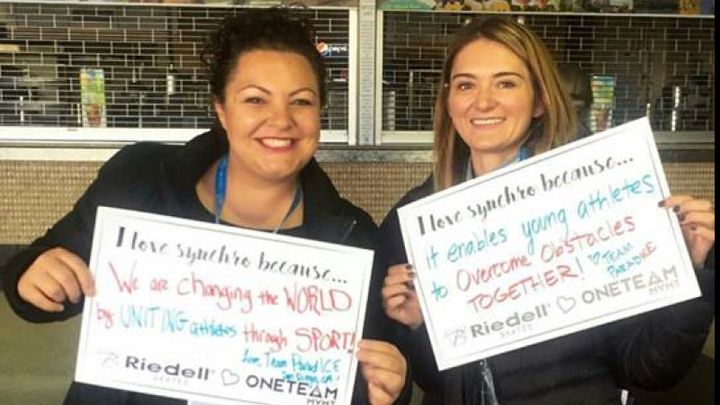 pepsi
I love synchro because...
We are changing the WORLD
by UNITING athletes through SPORT!
Love, Team ParadICE
San Diego, CA
Riedell
SKATES
ONETEAM
MVMT
I love synchro because...
it enables young athletes
to Overcome Obstacles
TOGETHER!
TEAM
PARADICE
Riedell
SKATES
ONETEAM
MVMT